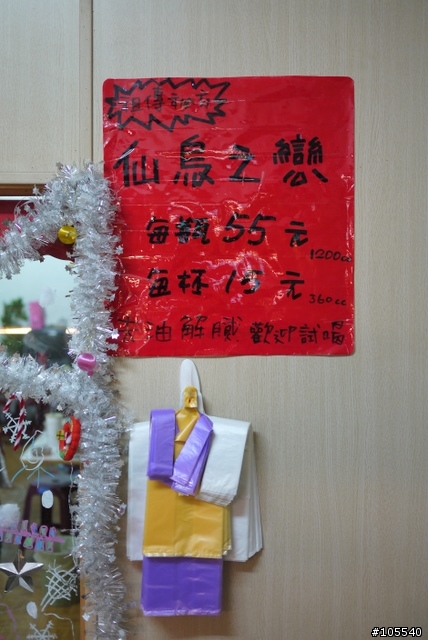 祖傳秘方
仙鳥之戀
每瓶 55 元
1200cc
每杯 15 元
360cc
油解膩 歡迎試喝
#105540